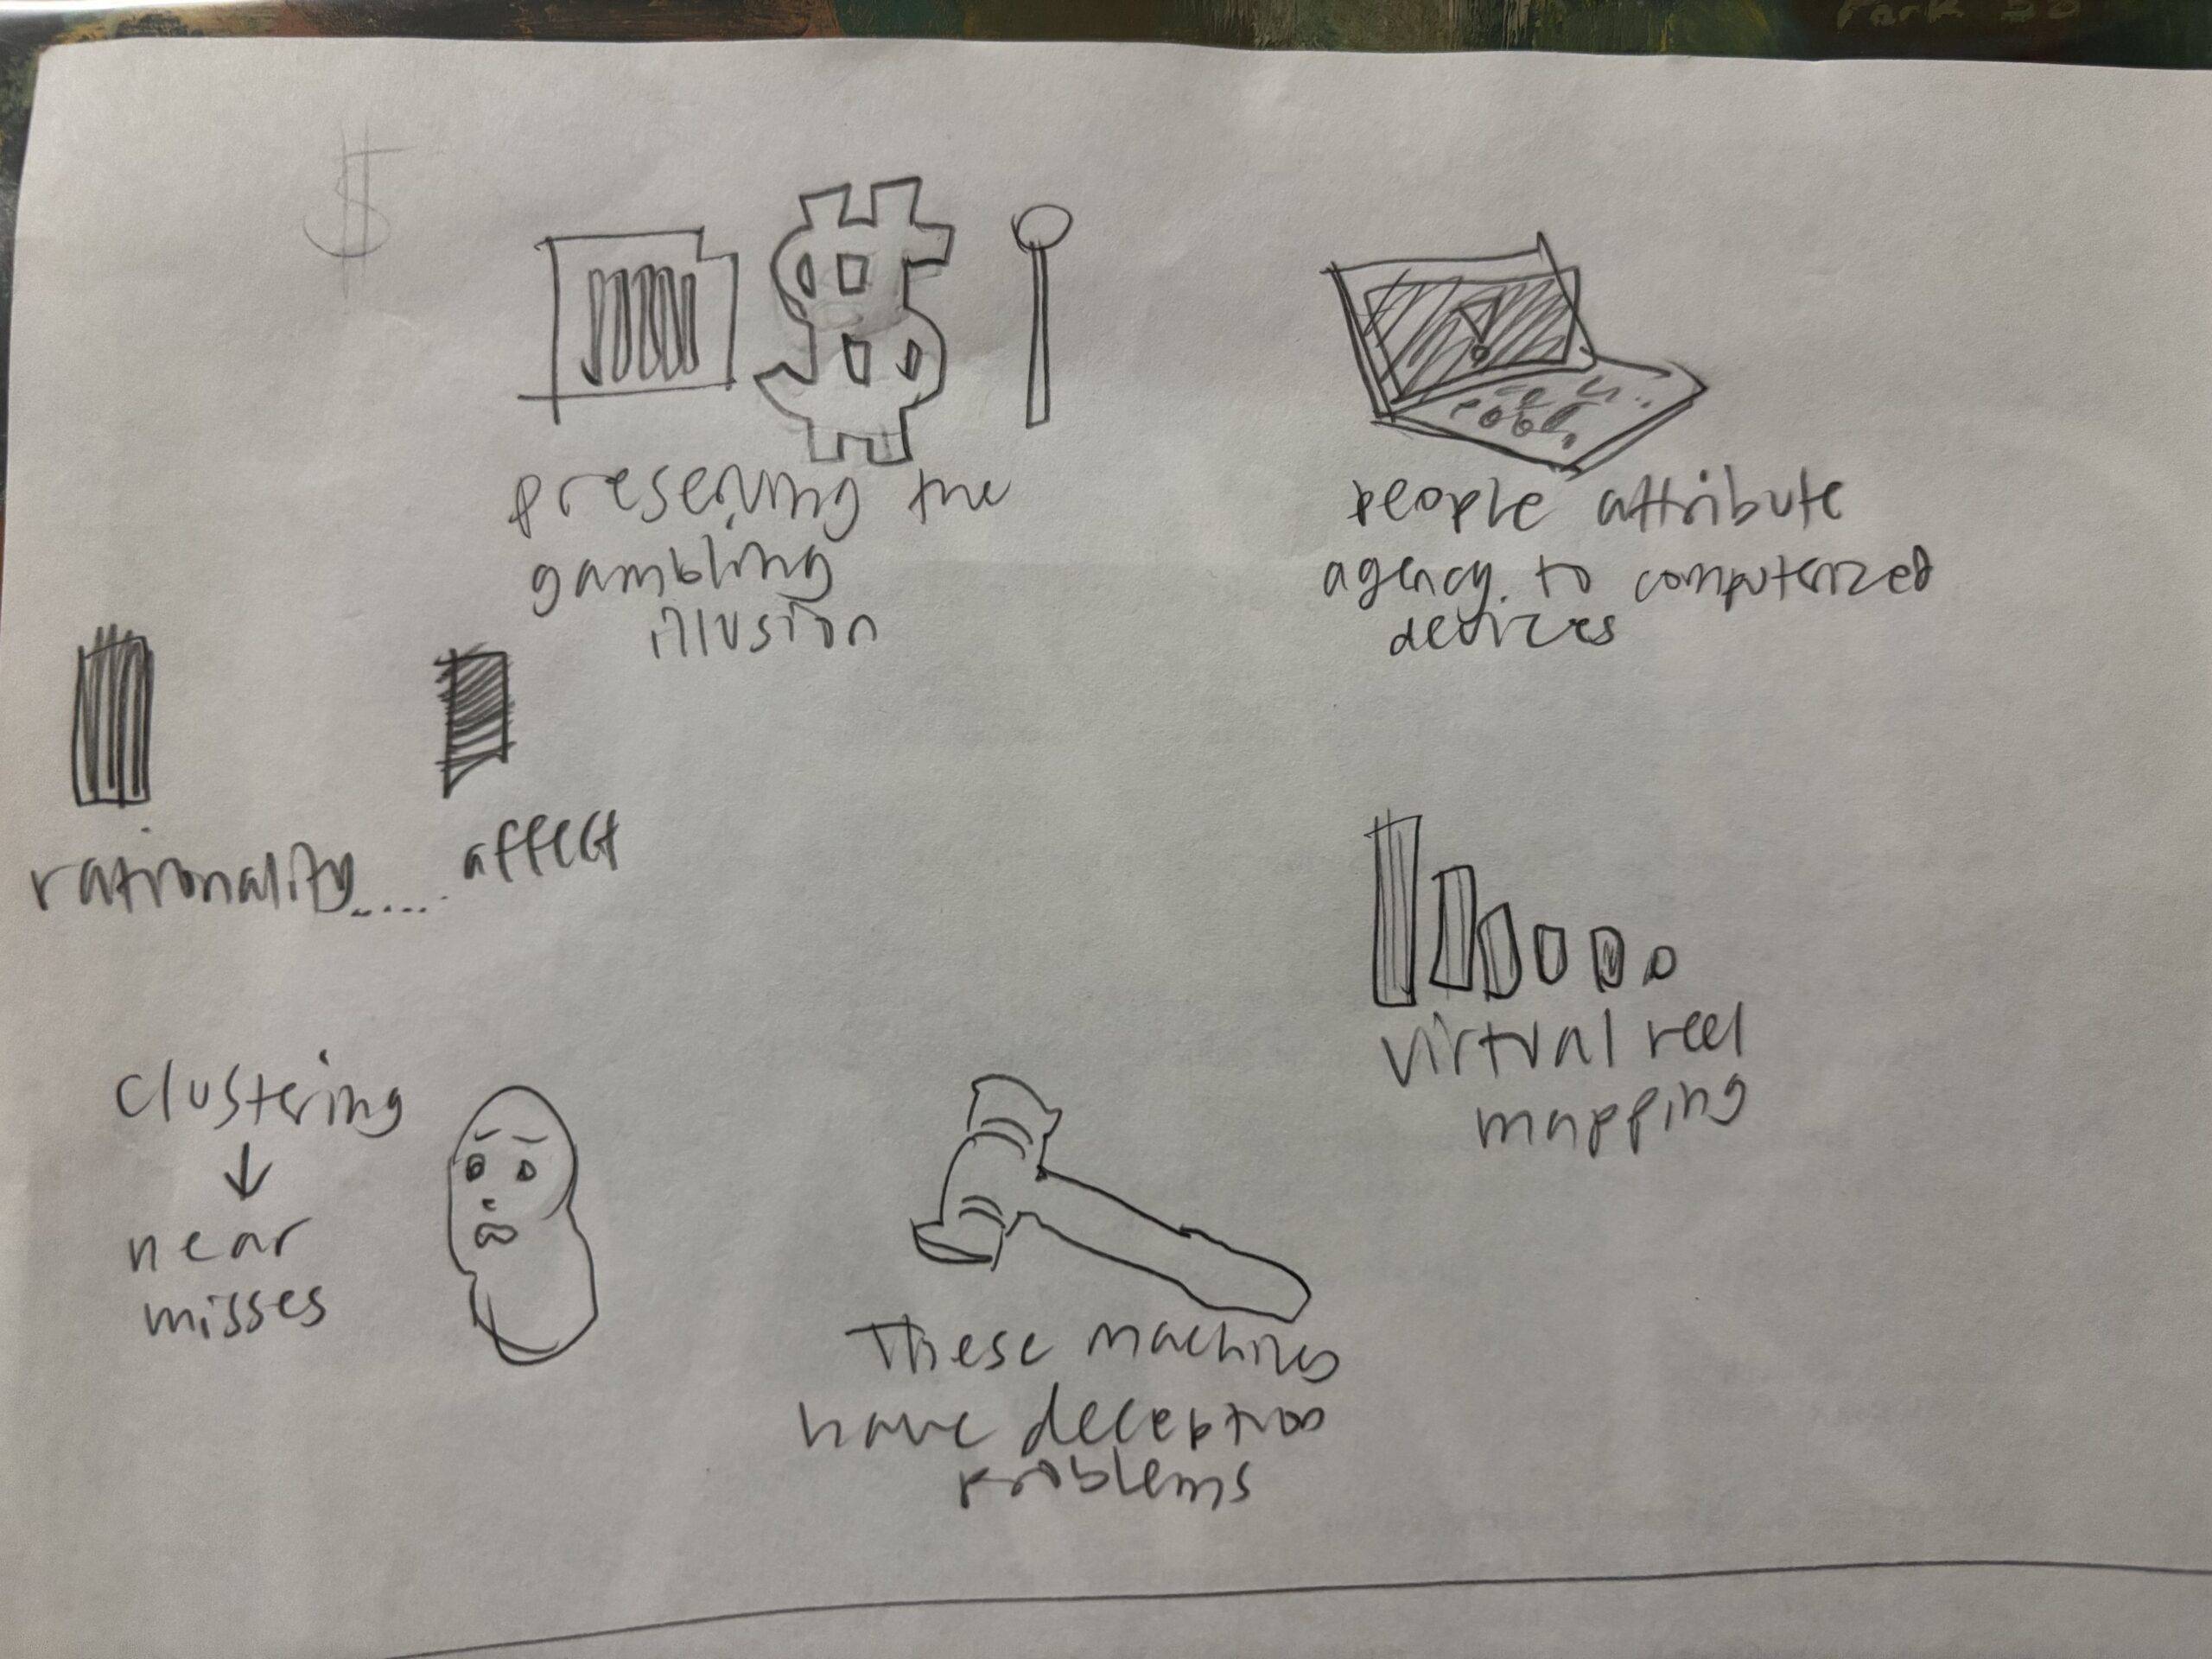 Park 38
$
preserving the
gambling
illusion
people attribute
agency to computerized
devices
rationality..... affect
virtual reel
mapping
clustering
↓
near
misses
These machines
have deception
problems